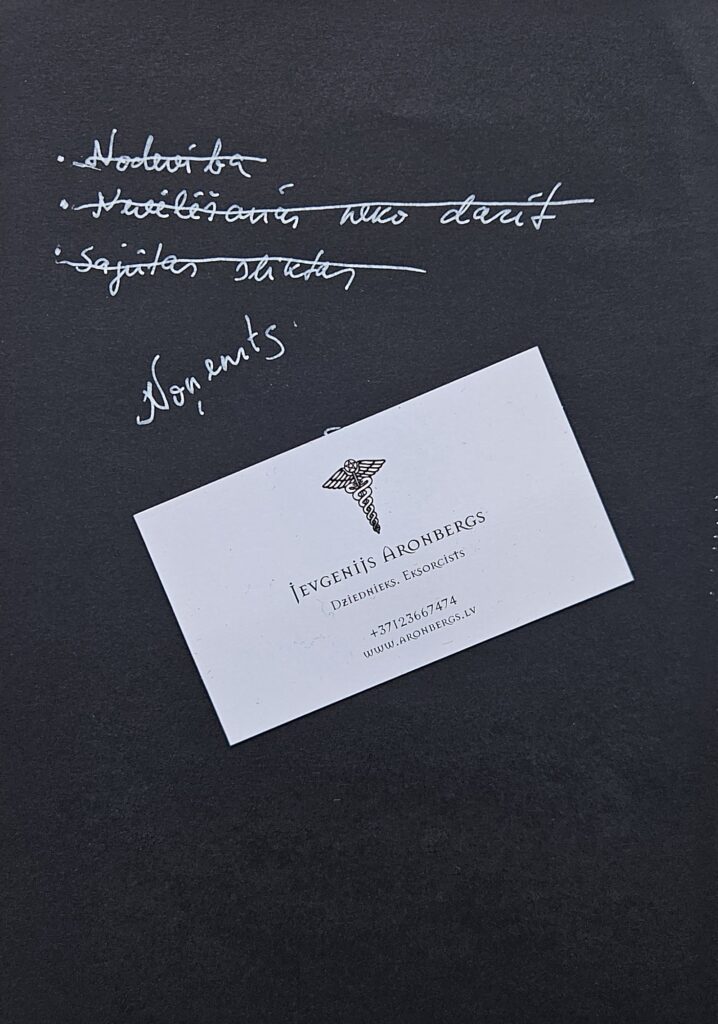 · Nodevība
· Nevēlēšanās neko darīt
· Sajūtas sliktas
Noņemts.
Jevgenijs Aronbergs
Dziednieks. Eksorcists
+37123667474
www.aronbergs.lv